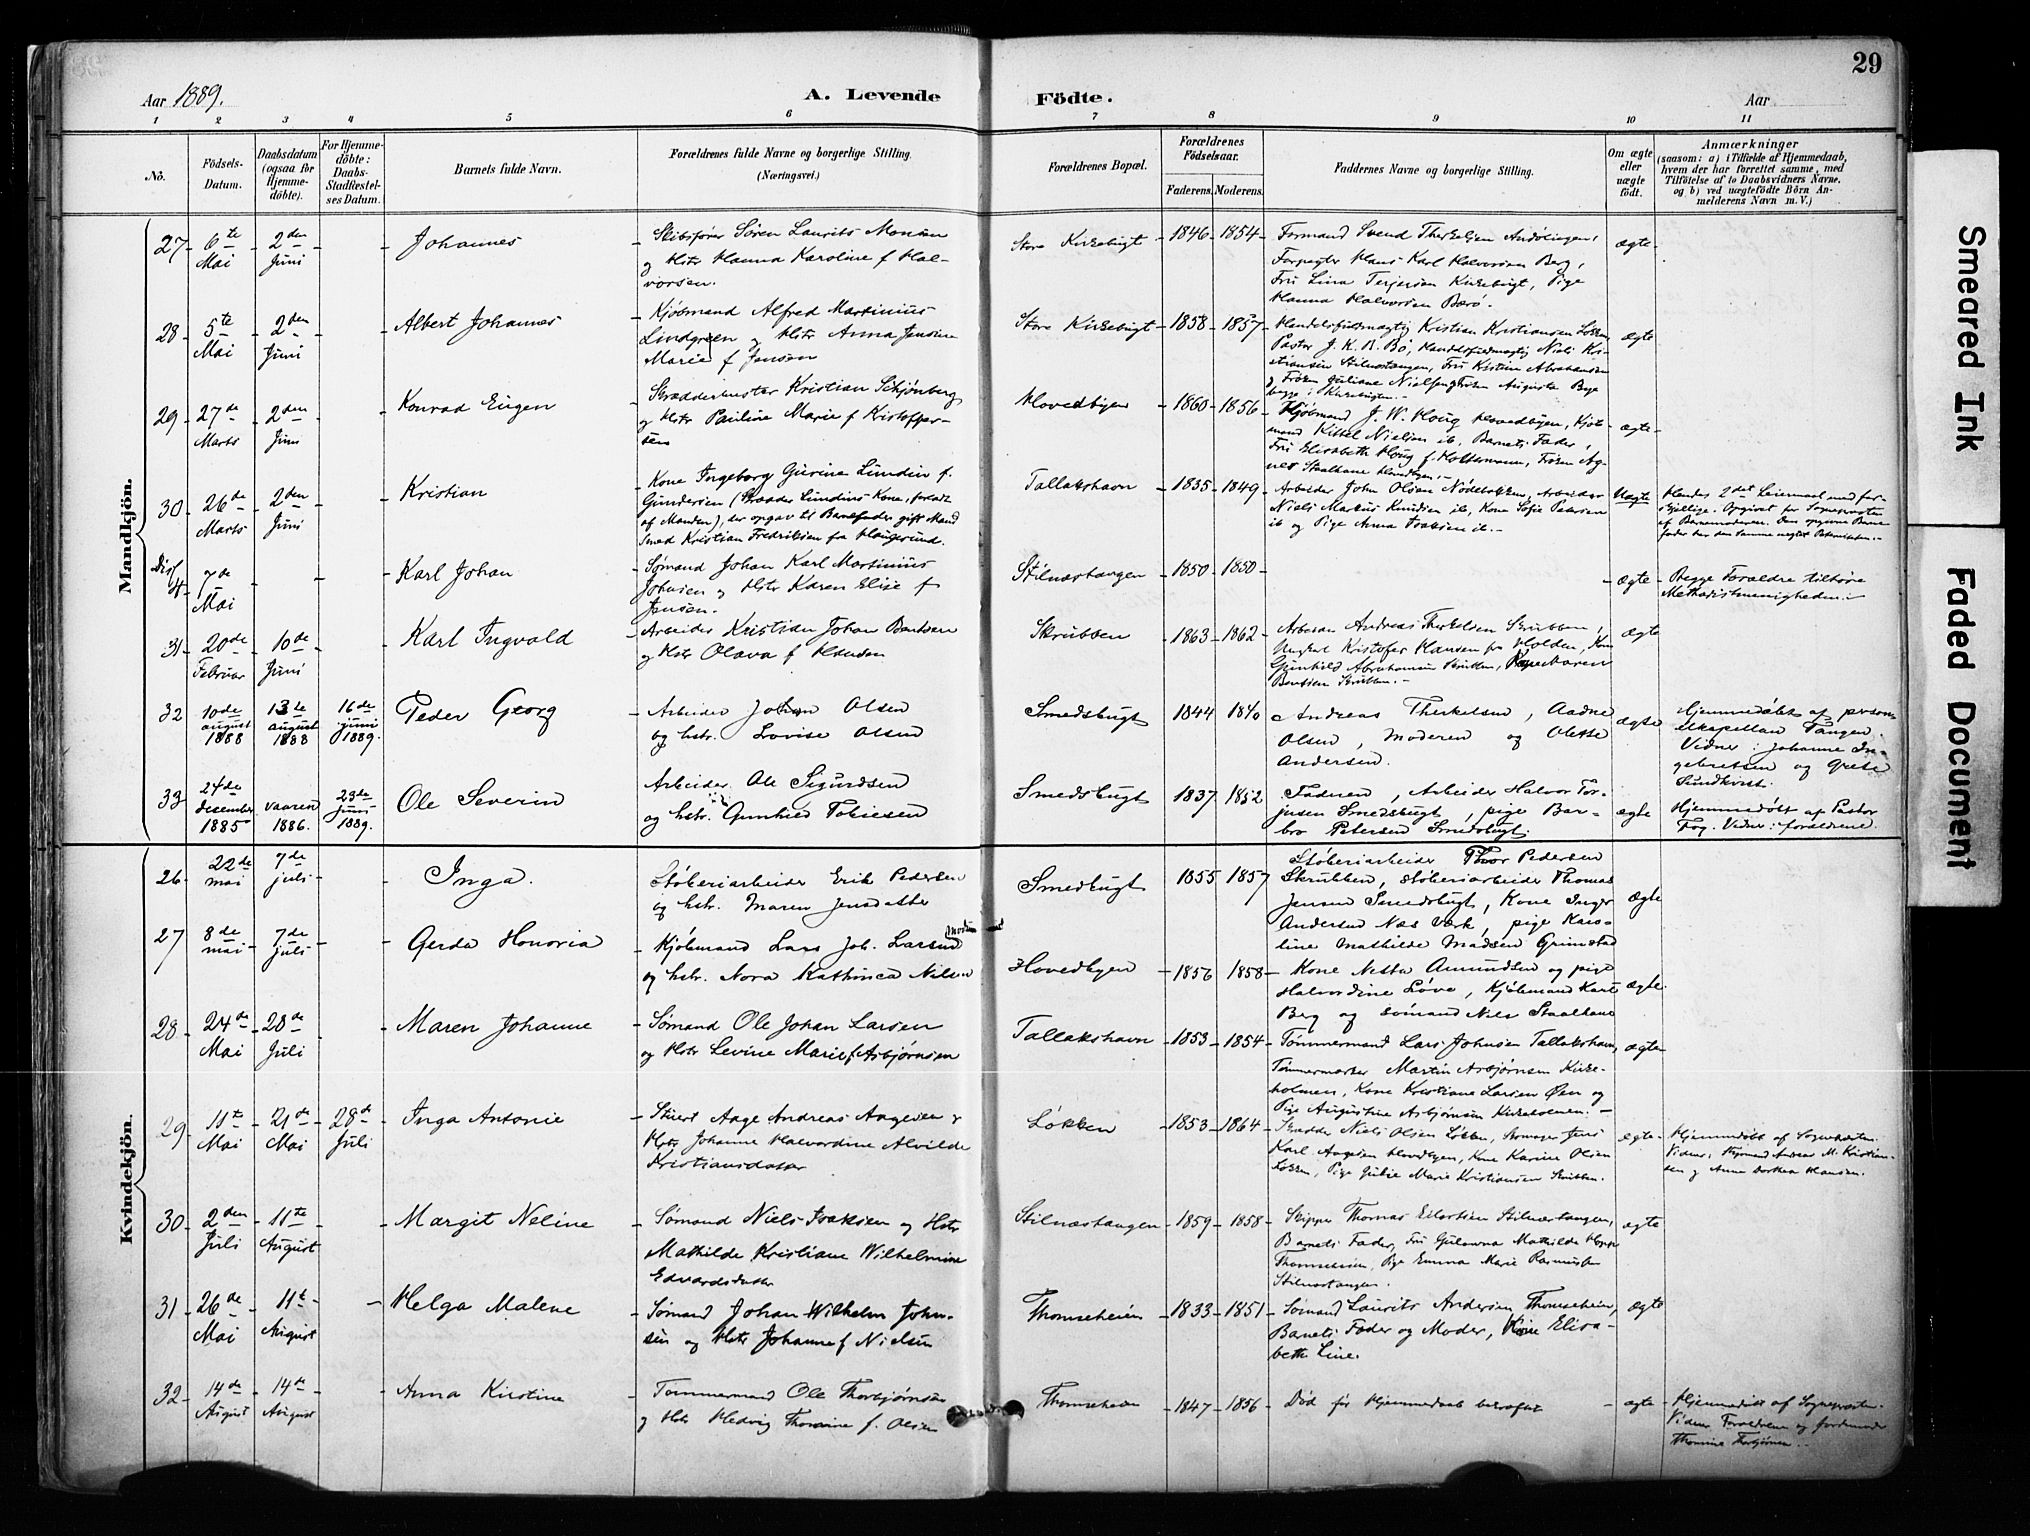 29
Aar 1889.
A. Levende
Födte.
Aar
1 2 3 4 5 6 7 8 9 10 11
No.
Födsels-
Datum.
Daabsdatum
(ogsaa for
Hjemme-
döbte).
For Hjemme-
döbte:
Daabs-
Stadfestel-
ses Datum.
Barnets fulde Navn.
Forældrenes fulde Navne og borgerlige Stilling.
(Næringsvei.)
Forældrenes Bopæl.
Forældrenes
Födselsaar.
Faderens. Moderens.
Faddernes Navne og borgerlige Stilling.
Om ægte
eller
uægte
födt.
Anmærkninger
(saasom: a) i Tilfælde af Hjemmedaab,
hvem der har forrettet samme, med
Tilföielse af to Daabsvidners Navne,
og b) ved uægtefödte Börn An-
melderens Navn m. V.)
Mandkjön.
27 6te Mai
2den Juni
Johannes
Skibsfører Søren Laurits Monsen
og Hstr Hanna Karoline f Hal-
vorsen.
Store Kirkebugt
1846 1854
Formand Svend Therkelsen
Forpagter Hans Karl Halvorsen Berg,
Fru Lina Terjesen Kirkebugt, Pige
Hanna Halvorsen Barø.
ægte
28 5te Mai
2den Juni
Albert Johannes
Kjøbmand Alfred Martinius
Lindgreen og Hstr Anna Jensine
Marie f Jensen
Store Kirkebugt
1858 1857
Handelsfuldmægtig Kristian Kristiansen Løkken
Pastor J. K. R. Bö, Handelsfuldmægtig Niels Kri-
stiansen Stilnæstangen, Fru Kistine Abrahamsen
ægte
29 27de Marts
2den Juni
Konrad Eugen
Skræddermester Kristian Schjønberg
og Hstr Pauline Marie f Kristoffer-
sen
Hovedbyen
1860 1856
Kjöbmand J. W. Houg Hovedbyen, Kjöb-
mand Kittel Nielsen ib, Barnets Fader,
Fru Elisabeth Houg f. Holtermann, Frøken Ag-
nes Staalhane Hovedbyen.
ægte
30 26de Marts
2den Juni
Kristian
Kone Ingeborg Gurine Lundin f.
Gundersen (Skrædder Lundins Kone, forladt
af Manden), der opgav til Barnefader gift Mand
Smed Kristian Fredriksen fra Haugesund.
Tallakshavn
1835 1849
Arbeider John Olsen Nödebokken, Arbeider
Niels Markus Knudsen ib, Kone Sofie Petersen
ib og Pige Anna Isaksen ib.
Uægte
Hendes 2det Leiermaal med for-
skjellige. Opgivet for Sognepresten
af Barnemoderen. Den opgivne Barne-
fader har den samme nægtet Paterniteten.
Diss
4 7de Mai
Karl Johan
Sømand Johan Karl Martinius
Johnsen og Hstr Karen Elise f
Jensen.
Stilnæstangen
1850 1850
ægte
Begge Forældre tilhøre
Methodistmenigheden.
31 20de Februar
10de Juni
Karl Ingvald
Arbeider Kristian Johan Bentsen
og Hstr Olava f Hansen
Skrubben
1863 1862
Andreas Therkelsen Skrubben,
Ungkarl Kristofer Hansen fra Holden, Kone
Gunhild Abrahamsen Skrubben, Pige Karen
Bentsen Skrubben.
ægte
32 10de august 1888
13de august 1888
16de juni 1889.
Peder Georg
Arbeider Johan Olsen
og hstr. Lovise Olsen
Smedsbugt
1844 1840
Andreas Therkelsen, Aadne
Olsen, Moderen og Olette
Andersen.
ægte
Hjemmedøbt af person-
elkapellan Tangen.
Vidner: Johanne In-
gebretsen og Grete
Sundkvist.
33 24de desember 1885
vaaren 1886.
23de juni 1889.
Ole Severin
Arbeider Ole Sigurdsen
og hstr. Gunhild Tobiesen
Smedsbugt
1837 1852
Faderen, Arbeider Halvor Tor-
jusen Smedsbugt, pige Bar-
bro Petersen Smedsbugt.
ægte
Hjemmedøbt af Pastor
Fog. Vidner: forældrene.
Kvindekjön.
26 22de mai
7de juli
Inga.
Støberiarbeider Erik Pedersen
og hstr. Maren Jensdatter
Smedbugt
1855 1857
Støberiarbeider Thor Pedersen
Skrubben, støberiarbeider Thomas
Jensen Smedsbugt, Kone Inger
Andersen Næs Værk, pige Karo-
line Mathilde Madsen Grimstad
ægte
27 8de mai
7de juli
Gerda Honoria
Kjöbmand Lars Joh. Larsen
og hstr. Nora Kathinca Nilsen
Hovedbyen
1856 1858
Kone Netta Amundsen og pige
Halvordine Løve, Kjøbmand Karl
Berg og sømand Nils Staalhane
ægte
28 24de Mai
28de Juli
Maren Johanne
Sømand Ole Johan Larsen
og Hstr Levine Marie f Asbjørnsen
Tallakshavn
1853 1854
Tømmermand Lars Johnsen Tallakshavn,
Tømmermester Martin Asbjørnsen Kirke-
holmen, Kone Kristiane Larsen Øen og
Pige Augustine Asbjørnsen Kirkeholmen.
ægte
29 11te Mai
21de Mai
28de Juli
Inga Antonie
Stuert Aage Andreas Aagesen &
Hstr Johanne Halvordine Alvilde
Kristiansdatter
Løkken
1853 1864
Skrædder Niels Olsen Løkken, Jens
Karl Aagesen Hovedbyen, Kone Karine Olsen
Løkken, Pige Julie Marie Kristiansen Skrubben.
ægte
Hjemmedøbt af Sognepresten.
Vidner: Andreas M. Kristian-
sen og Anne Dorthea Hansen.
30 2den Juli
11te August
Margit Neline
Sømand Niels Isaksen og Hstr
Mathilde Kristiane Wilhelmine
Edvardsdatter
Stilnæstangen
1859 1858
Skipper Thomas Eilertsen Stilnæstangen,
Barnets Fader, Fru Mathilde
Thomseheien, Pige Emma Marie Rasmussen
Stilnæstangen.
ægte
31 26de Mai
11te August
Helga Malene
Sømand Johan Wilhelm John-
sen og Hstr Johanne f Nielsen
Thomseheien
1833 1851
Sømand Laurits Andersen Thomseheien,
Barnets Fader og Moder, Kone Elisa-
beth Line.
ægte
32 14de August
14de August
Anna Kirstine
Tømmermand Ole Thorbjørnsen
og Hstr Hedvig Thomine f. Olsen
Thomseheien
1847 1856
Død før Hjemmedaab bekræftet
ægte
Hjemmedøbt af Sognepresten.
Vidner Forældrene og Jordemoder
Smeared Ink
Faded Document